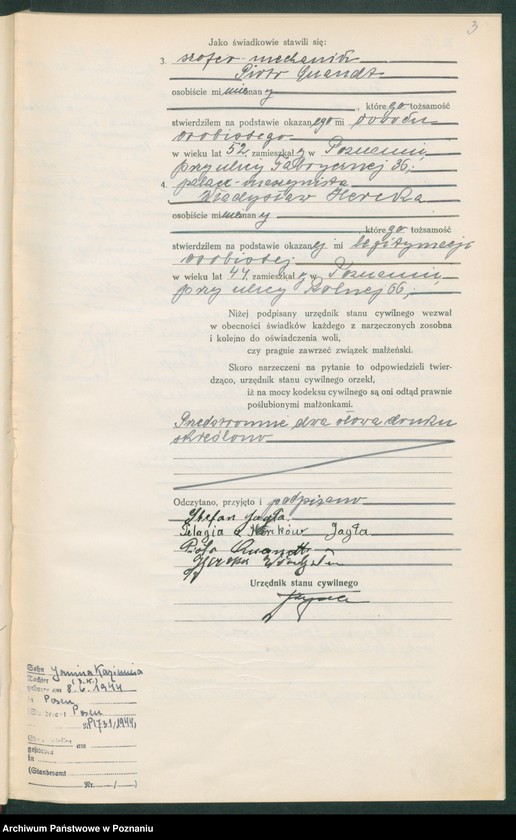 3
Jako świadkowie stawili się:
3. szofer-mechanik
Piotr Quandt
osobiście mi nieznany
, którego tożsamość
stwierdziłem na podstawie okazanego mi dowodu
osobistego
w wieku lat 52, zamieszkały w Poznaniu,
przy ulicy Fabrycznej 36;
4. palacz-maszynista
Władysław Hercka
osobiście mi nieznany
, którego tożsamość
stwierdziłem na podstawie okazanej mi legitymacji
osobistej
w wieku lat 44, zamieszkały w Poznaniu,
przy ulicy Rolnej 66;
Niżej podpisany urzędnik stanu cywilnego wezwał
w obecności świadków każdego z narzeczonych zosobna
i kolejno do oświadczenia woli,
czy pragnie zawrzeć związek małżeński.
Skoro narzeczeni na pytanie to odpowiedzieli twier-
dząco, urzędnik stanu cywilnego orzekł,
iż na mocy kodeksu cywilnego są oni odtąd prawnie
poślubionymi małżonkami.
Przedstronnie dwa słowa druku
skreślono
Odczytano, przyjęto i podpisano
Stefan Jagła
Pelagia z Jagła
Piotr Quandt
Urzędnik stanu cywilnego
Sohn Janina Kazimiera
Tochter (r.k.)
geboren am 8.6.1944
in Posen
Posen
Nr 1731/1944
am
gestorben
in
(Standesamt
Nr. / )
Archiwum Państwowe w Poznaniu